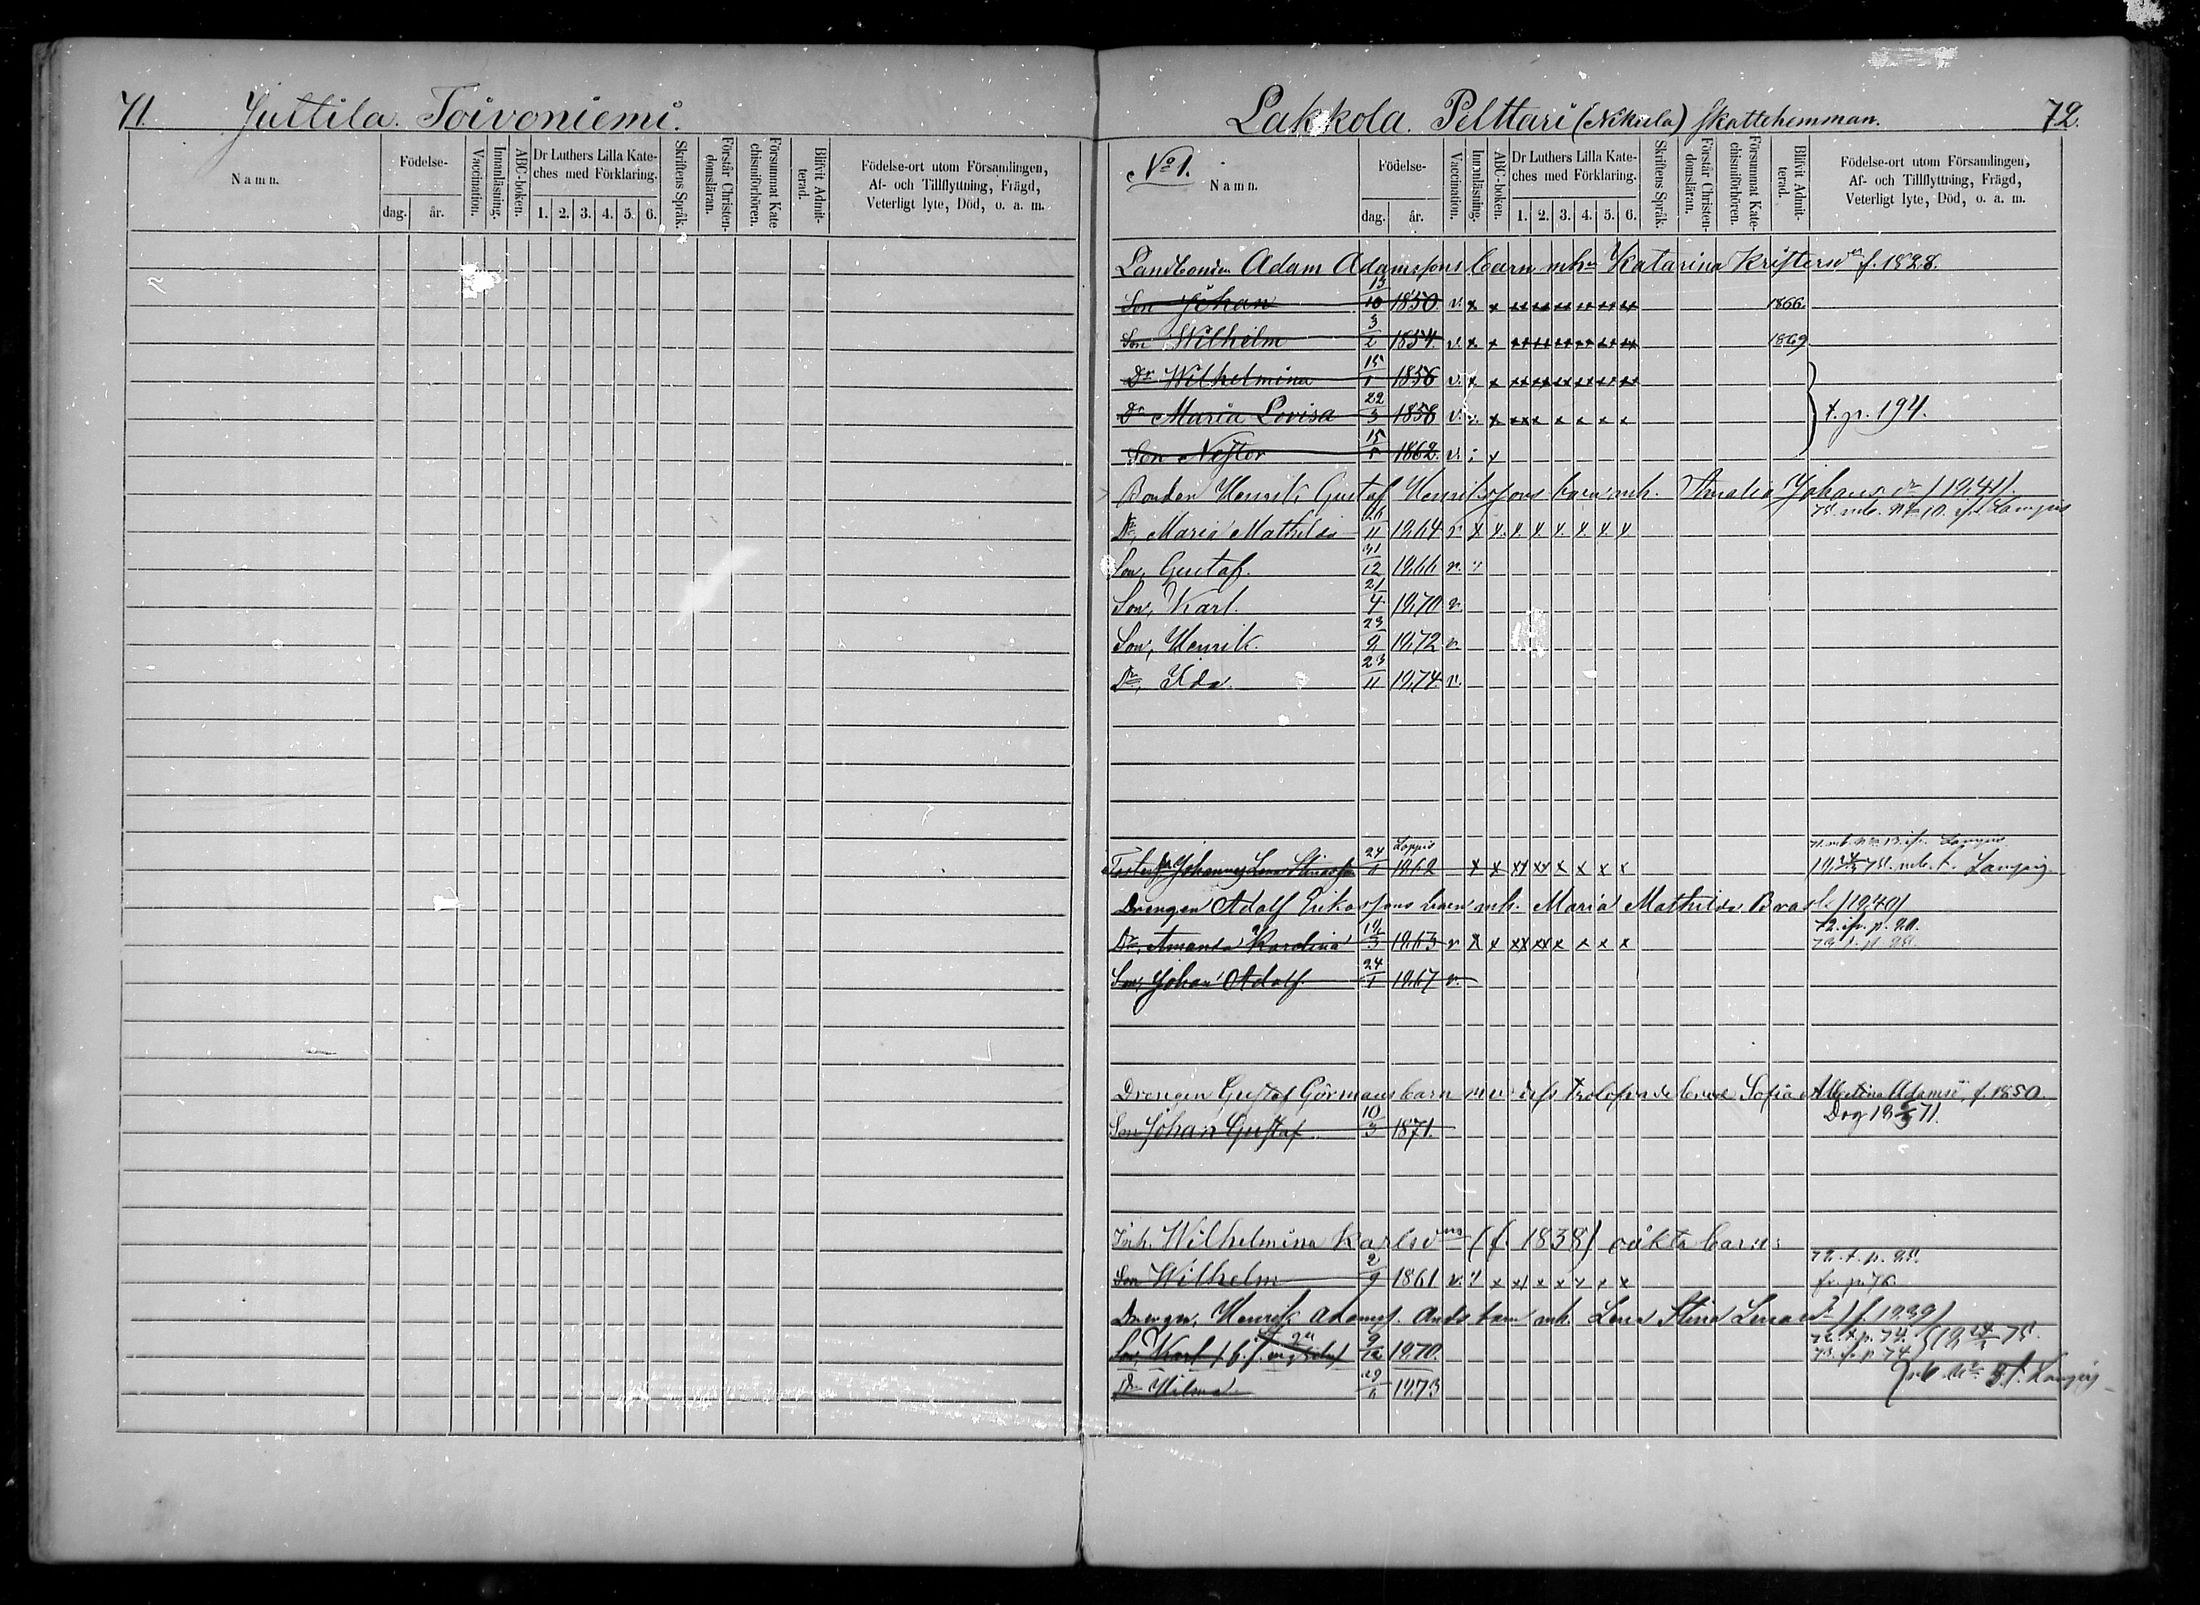 71. Juttila. Toivoniemi.
Namn.
Födelse-
dag. år.
Vaccination.
Innanläsning.
ABC-boken.
Dr Luthers Lilla Kate-
ches med Förklaring.
1. 2. 3. 4. 5. 6.
Skriftens Språk.
Förstår Christen-
domsläran.
Försummat Kate
chismiförhören.
Blifvit Admit-
terad.
Födelse-ort utom Församlingen,
Af- och Tillflyttning, Frägd,
Veterligt lyte, Död, o. a. m.
Lakkola. Pelttari (Nikula) Skattehemman. 72.
No 1.
Namn.
Födelse-
dag. år.
Vaccination.
Innanläsning.
ABC-boken.
Dr Luthers Lilla Kate-
ches med Förklaring.
1. 2. 3. 4. 5. 6.
Skriftens Språk.
Förstår Christen-
domsläran.
Försummat Kate-
chismiförhören.
Blifvit Admit-
terad.
Födelse-ort utom Församlingen,
Af- och Tillflyttning, Frägd,
Veterligt lyte, Död, o. a. m.
Landbonden Adam Adamssons barn mhu Katarina Kristersdr f. 1828.
Son Johan 13/10 1850. v. x x xx xx xx xx xx xx 1866.
Son Wilhelm 3/2 1854. v. x x xx xx xx xx xx xx 1869
Dr Wilhelmina 15/1 1856 v. x x xx xx xx xx xx xx
Dr Maria Lovisa 22/3 1858 v. x xx x x x x x t. p. 194.
Son Nestor 15/5 1862. v. x
Bonden Henrik Gustaf Henrikssons barn mh. Amalia Johansdr (1841).
75. mb. No 10. ifr. Lampis
Dr, Maria Mathilda 26/11 1864 v x x x x x x x x
Son, Gustaf. 31/12 1866 v.
Son, Karl. 21/4 1870 v.
Son, Henrik. 23/9 1872 v.
Dr, Ida. 23/11 1874 v.
Loppis
24/1 1862 x x xx xx x x x x t. Lampis.
Drengen Adolf Erikssons barn mh. Maria Mathilda (1840)
Dr, Amanda Karolina 3 1863 v x x xx xx x x x x
Son, Johan Adolf. 24/1 1867 v.
Drengen Gustaf Görmans barn med dess trolofvade Sofia Albertina Adamsd. f. 1850.
Son Johan Gustaf 10/3 1871. Dog 71.
Inh. Wilhelmina Karlsdrs (f. 1838) oäkta barn:
Son Wilhelm 2/9 1861 v. x xx x x x x x fr. p. 76.
Drengen, Henrik Adamss. barn mh. Lena Stina (f. 1839)
Son, Karl 9/12 1870.
Dr Hilma 29 1873